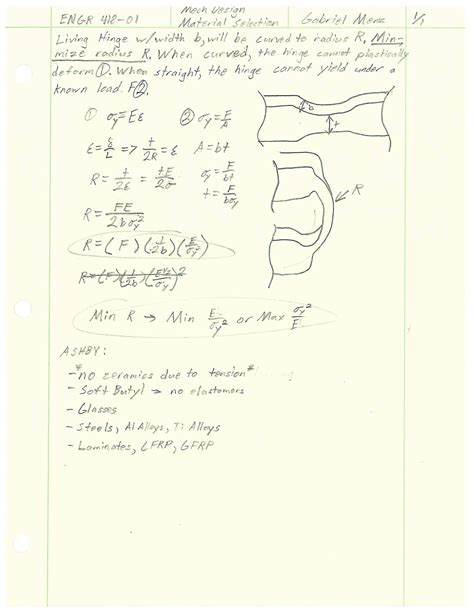 ENGR 418-01
Mech Design
Material Selection
Gabriel Menz
1/1
Living Hinge w/width b, will be curved to radius R. Mini-
mize radius R. When curved, the hinge cannot plastically
deform①. When straight, the hinge cannot yield under a
known load. F②.
① σy=Eε
② σy=F/A
ε=δ/L => t/2R=ε
A=bt
R= t/2ε = tE/2σ
σy= F/bt
t= F/bσy
R= FE/2bσy²
R=(F)(1/2b)(E/σy²)
R=(F)(1/2b)(E^½/σy)²
Min R → Min E/σy² or Max σy²/E
b
t
R
ASHBY:
-*no ceramics due to tension*
- Soft Butyl → no elastomers
- Glasses
- Steels, Al Alloys, Ti Alloys
- Laminates, CFRP, GFRP